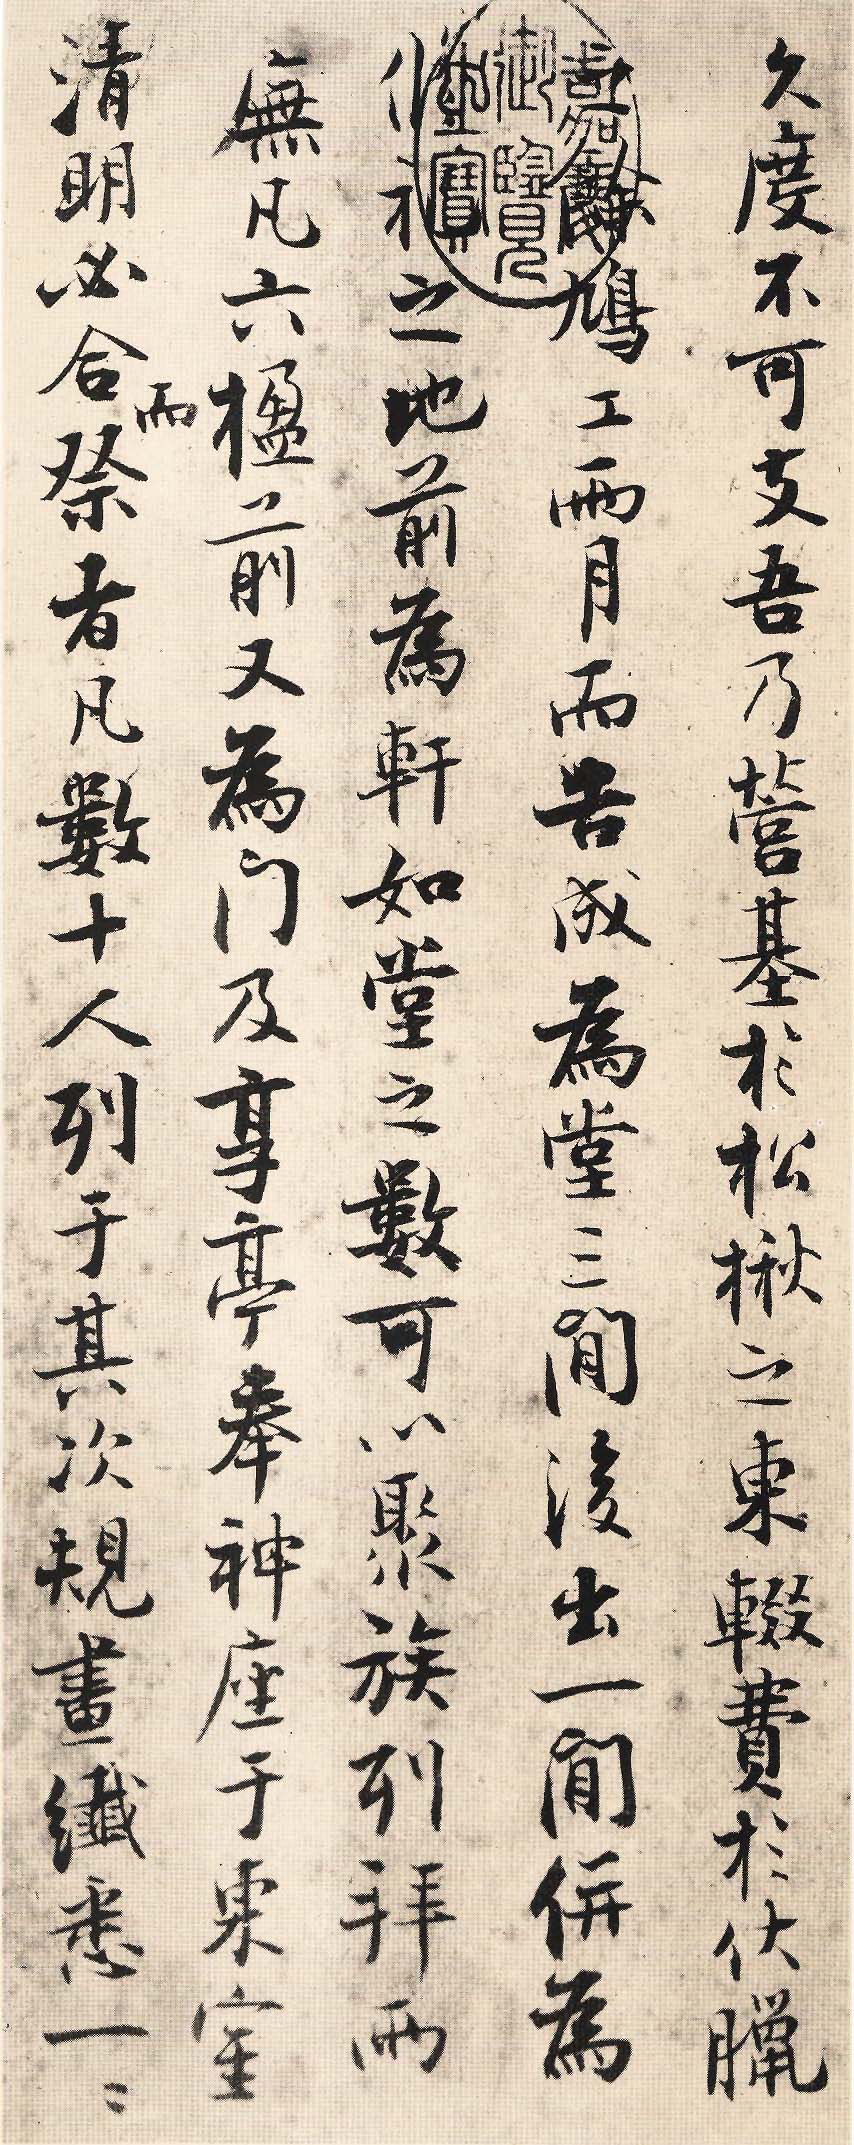 久度不可支吾乃營基於松楸之東輟費於伏臘
餘鳩工兩月而告成為堂三間後出一間併為
之地前為軒如堂之數可以聚族列拜兩
廡凡六楹前又為門及享亭奉神座于東室
清明必合而祭者凡數十人列于其次規畫纖悉一〻
嘉慶御覽之寶